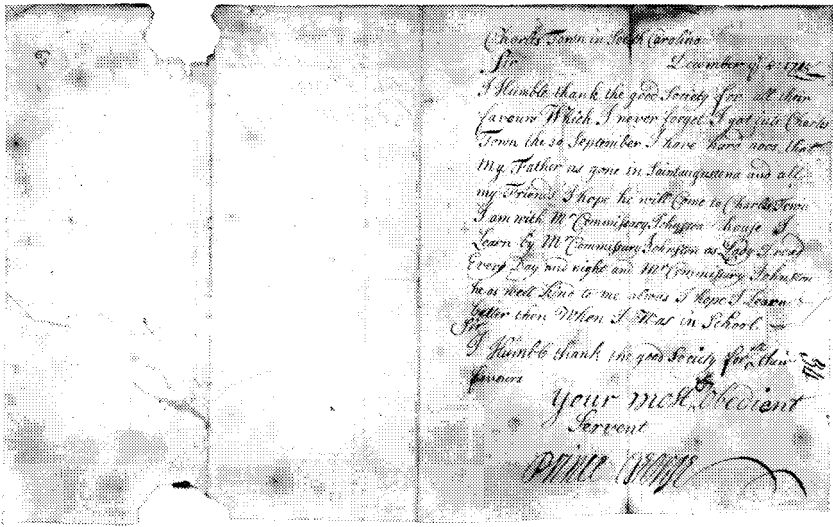 Charles Town in South Carolina
Sir December ye 8 1715
I Humble thank the good Society for all their
favours Which I never forget I got into Charles
Town the 30 September I have hard noos that
my Father as gone in Saintaugusteena and all
my Friends I hope he will Come to Charles Town
I am with Mr Commissary Johnston house I
Learn by Mr Commissary Johnston as Lady I read
Every Day and night and Mr Commissary Johnston
he as well Kind to me alwas I hope I Learn
better then When I Was in School
Sir
I Humble thank the good Society for all their
favours
Your most Obedient
Servent
Prince George